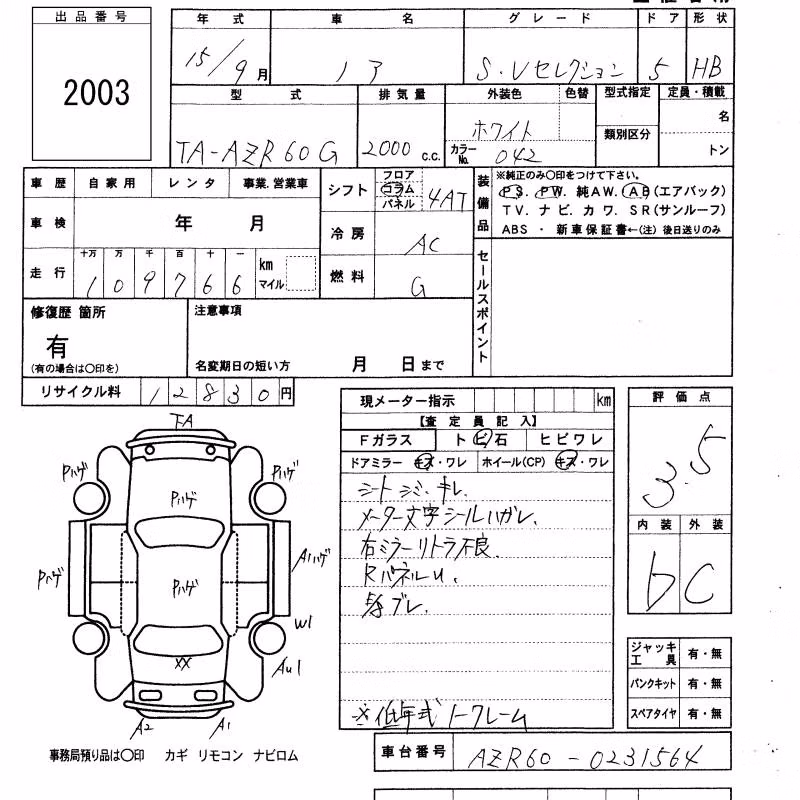 出品番号
2003
年式 車名 グレード ドア 形状
15/9月 ノア S・Vセレクション 5 HB
型式 排気量 外装色 色替 型式指定 定員・積載
類別区分 名
トン
TA-AZR60G 2000c.c. ホワイト
カラーNo. 042
車歴 自家用 レンタ 事業.営業車
車検 年 月
走行 十万 万 千 百 十 一
109766 km マイル
シフト フロア コラム パネル 4AT
冷房 AC
燃料 G
装備品
※純正のみ〇印をつけて下さい。
PS. PW. 純AW. AB(エアバック)
TV. ナビ. カワ. SR(サンルーフ)
ABS ・ 新車保証書←(注) 後日送りのみ
セールスポイント
修復歴 箇所
有
(有の場合は〇印を)
注意事項
名変期日の短い方 月 日まで
リサイクル料 12830円
現メーター指示 km
【査定員記入】
Fガラス トビ石 ヒビワレ
ドアミラー キズ・ワレ ホイール(CP) キズ・ワレ
シートシミ・キレ.
メーター文字シールハガレ.
右ミラーリトラ不良.
RパネルU.
ブレ.
※低年式ノークレーム
評価点
3.5
内装 外装
b C
ジャッキ工具 有・無
パンクキット 有・無
スペアタイヤ 有・無
TA
Pハゲ
Pハゲ
Pハゲ
Pハゲ
Pハゲ
A1ハゲ
W1
XX
AU1
A2
A1
事務局預り品は〇印 カギ リモコン ナビロム
車台番号 AZR60-0231564